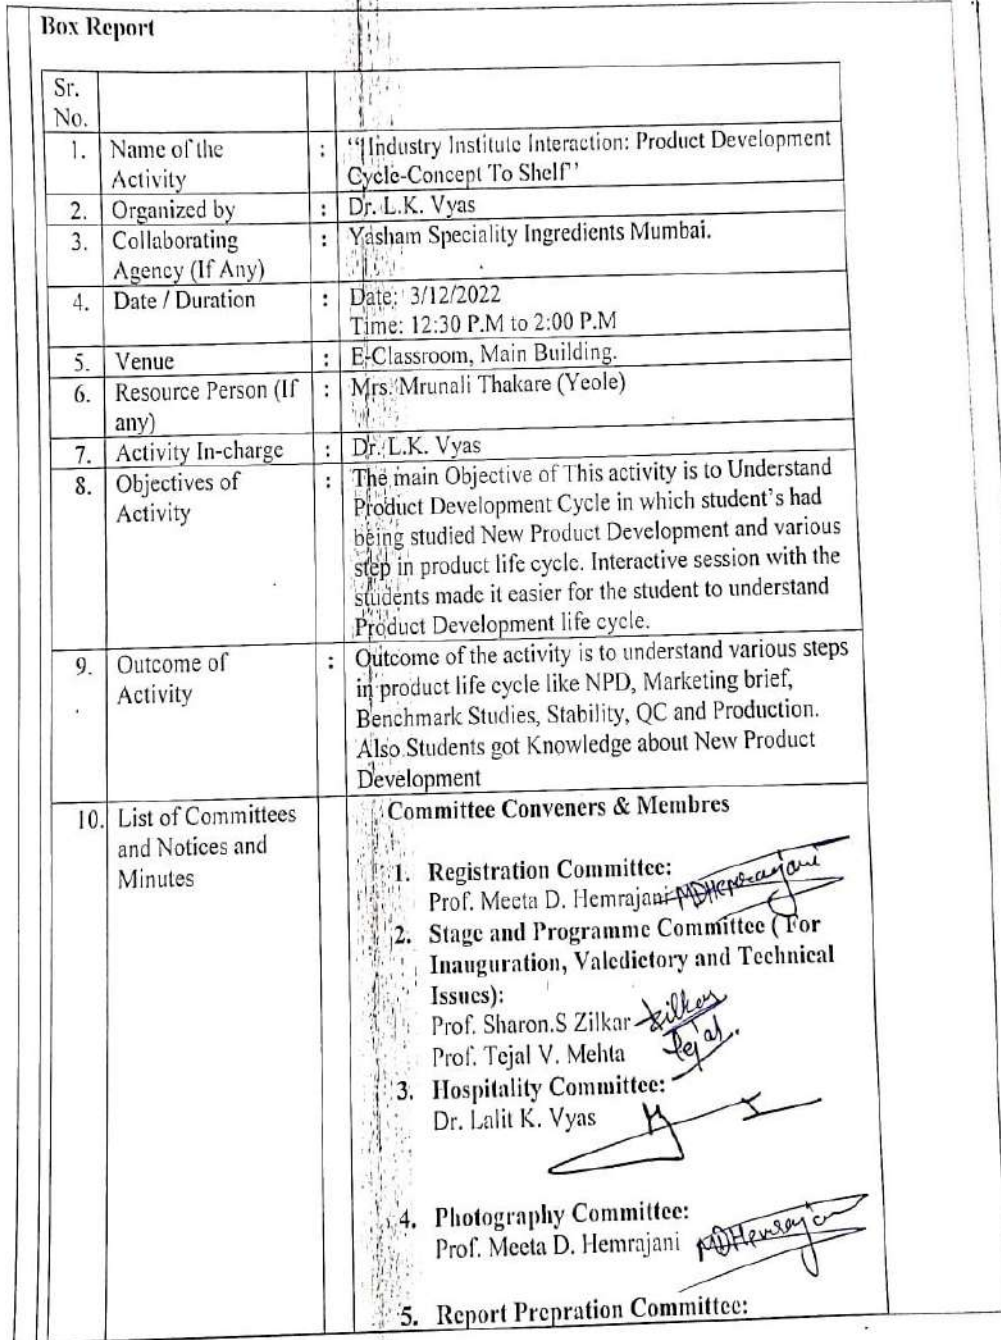 Box Report
Sr.
No.
1. Name of the Activity : “Industry Institute Interaction: Product Development
Cycle-Concept To Shelf”
2. Organized by : Dr. L.K. Vyas
3. Collaborating Agency (If Any) : Yasham Speciality Ingredients Mumbai.
4. Date / Duration : Date: 3/12/2022
Time: 12:30 P.M to 2:00 P.M
5. Venue : E-Classroom, Main Building.
6. Resource Person (If any) : Mrs. Mrunali Thakare (Yeole)
7. Activity In-charge : Dr. L.K. Vyas
8. Objectives of Activity : The main Objective of This activity is to Understand
Product Development Cycle in which student's had
being studied New Product Development and various
step in product life cycle. Interactive session with the
students made it easier for the student to understand
Product Development life cycle.
9. Outcome of Activity : Outcome of the activity is to understand various steps
in product life cycle like NPD, Marketing brief,
Benchmark Studies, Stability, QC and Production.
Also Students got Knowledge about New Product
Development
10. List of Committees and Notices and Minutes
Committee Conveners & Membres
1. Registration Committee:
Prof. Meeta D. Hemrajani MDHemrajani
2. Stage and Programme Committee ( For
Inauguration, Valedictory and Technical
Issues):
Prof. Sharon.S Zilkar Zilkar
Prof. Tejal V. Mehta Tejal.
3. Hospitality Committee:
Dr. Lalit K. Vyas
4. Photography Committee:
Prof. Meeta D. Hemrajani MDHemrajani
5. Report Prepration Committee: